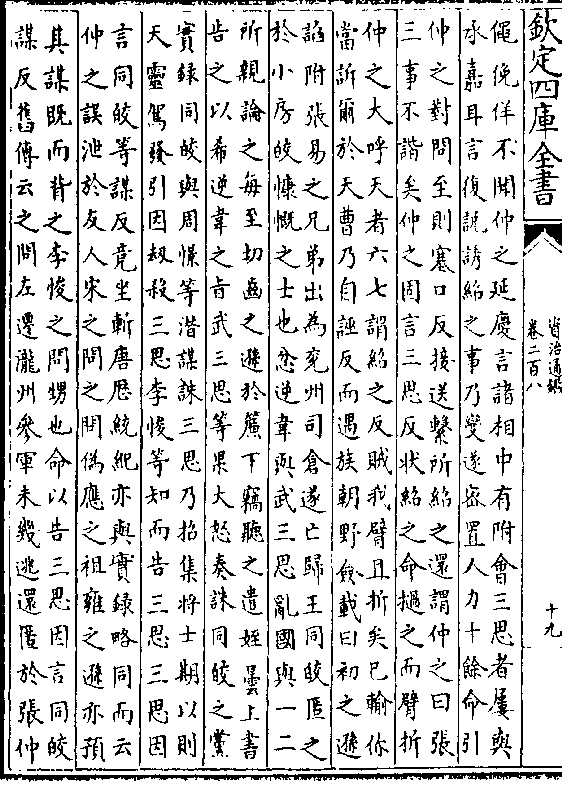 欽定四庫全書
資治通鑑
卷二百八
十九
僶俛佯不聞仲之延慶言諸相中有附會三思者屢與
承嘉耳言復說誘紹之事乃變遂密置人力十餘命引
仲之對問至則塞口反接送繫所紹之還謂仲之曰張
三事不諧矣仲之固言三思反狀紹之命撾之而臂折
仲之大呼天者六七謂紹之反賊我臂且折矣已輸你
當訴爾於天曹乃自誣反而遇族朝野僉載曰初之遜
諂附張易之兄弟出為兗州司倉遂亡歸王同皎匿之
於小房皎慷慨之士也忿逆韋與武三思亂國與一二
所親論之每至切齒之遜於簾下竊聽之遣姪曇上書
告之以希逆韋之旨武三思等果大怒奏誅同皎之黨
實錄同皎與周憬等潛謀誅三思乃招集將士期以則
天靈駕發引因刼殺三思李悛等知而告三思三思因
言同皎等謀反竟坐斬唐歷統紀亦與實錄略同而云
仲之誤泄於友人宋之問之問偽應之祖雍之遜亦預
其謀既而背之李悛之問甥也命以告三思因言同皎
謀反舊傳云之問左遷瀧州參軍未幾逃還匿於張仲